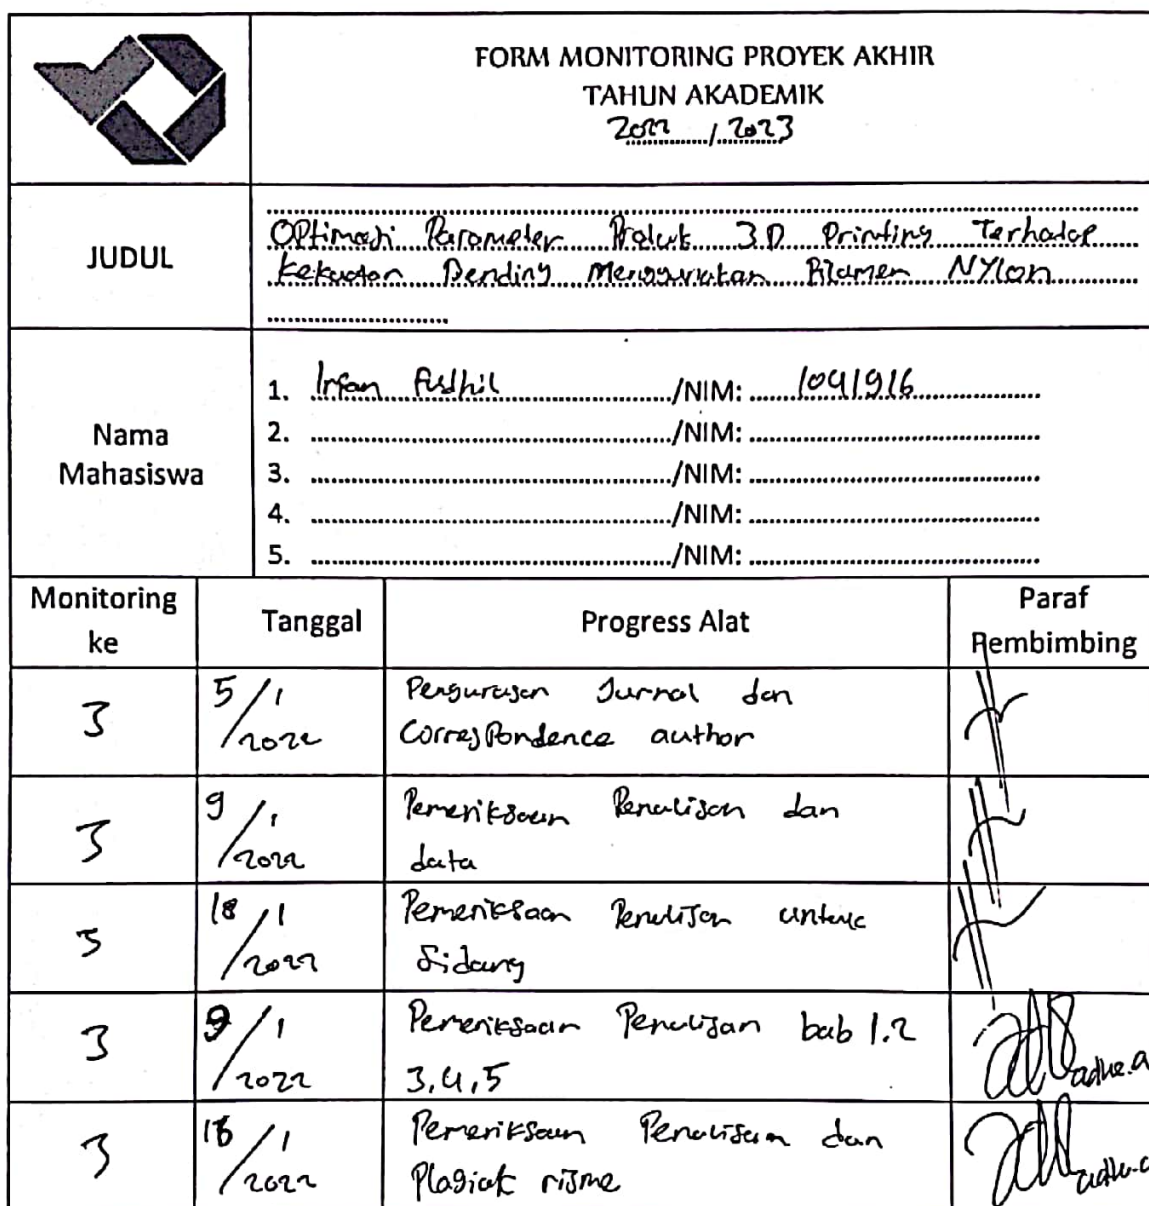 FORM MONITORING PROYEK AKHIR
TAHUN AKADEMIK
2022 / 2023
JUDUL
OPtimasi Parameter Produk 3D Printing Terhadap
Kekuatan Bending Menggunakan Filamen NYlon
Nama
Mahasiswa
1. Irfan Fadhil /NIM: 1041916
2. /NIM:
3. /NIM:
4. /NIM:
5. /NIM:
Monitoring
ke
Tanggal
Progress Alat
Paraf
Pembimbing
3
5/1/2022
Pengurusan Jurnal dan
CorresPondence author
3
9/1/2022
Pemeriksaan Penulisan dan
data
3
18/1/2022
Pemeriksaan Penulisan untuk
Sidang
3
9/1/2022
Pemeriksaan Penulisan bab 1.2
3,4,5
3
1/2022
Pemeriksaan Penulisan dan
Plagiat risme